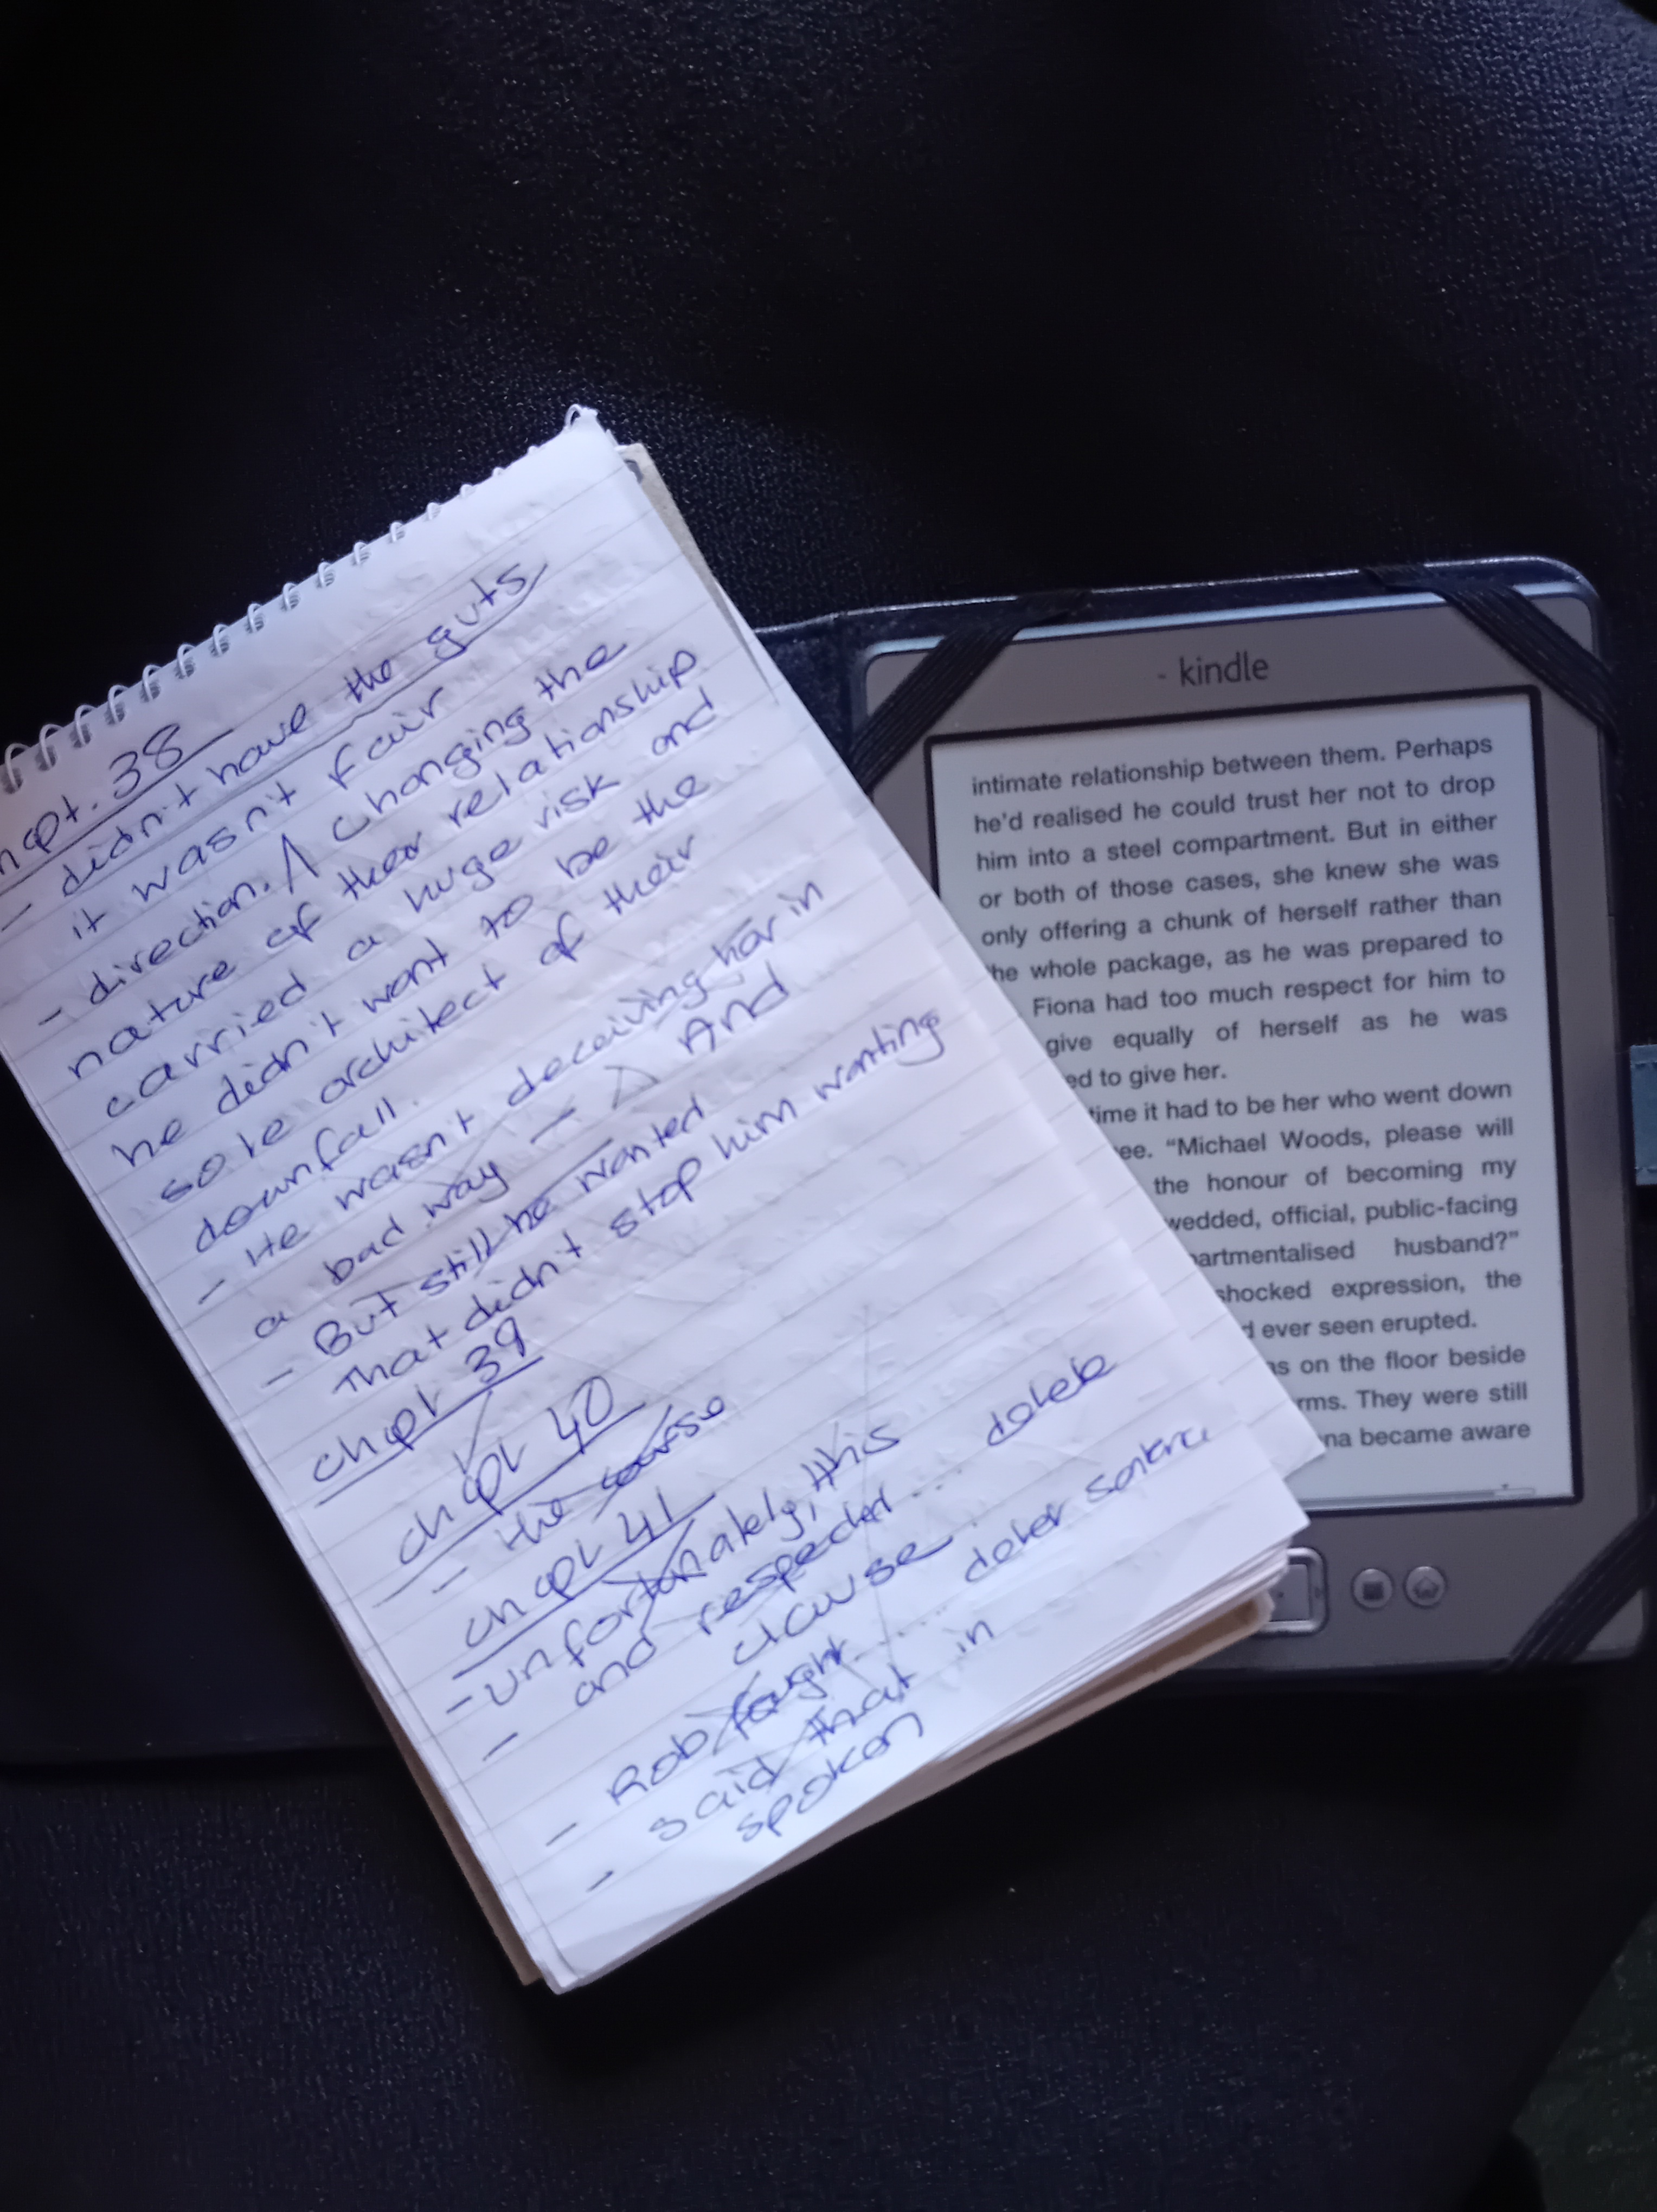 hapt. 38
- didn't have the guts
it wasn't fair
- direction. Λ Changing the
nature of their relationship
carried a huge risk and
he didn't want to be the
sole architect of their
downfall.
- He wasn't deceiving her in
a bad way — And
- But still he wanted
That didn't stop him wanting
chpt 39
chpt 40
- the
chpt 41
- unfortunately, this
- and respected... delete
clause
- Rob fought.... delete
- said that in
spoken
kindle
intimate relationship between them. Perhaps
he'd realised he could trust her not to drop
him into a steel compartment. But in either
or both of those cases, she knew she was
only offering a chunk of herself rather than
he whole package, as he was prepared to
Fiona had too much respect for him to
give equally of herself as he was
ed to give her.
time it had to be her who went down
ee. “Michael Woods, please will
the honour of becoming my
wedded, official, public-facing
partmentalised husband?”
shocked expression, the
d ever seen erupted.
as on the floor beside
rms. They were still
na became aware